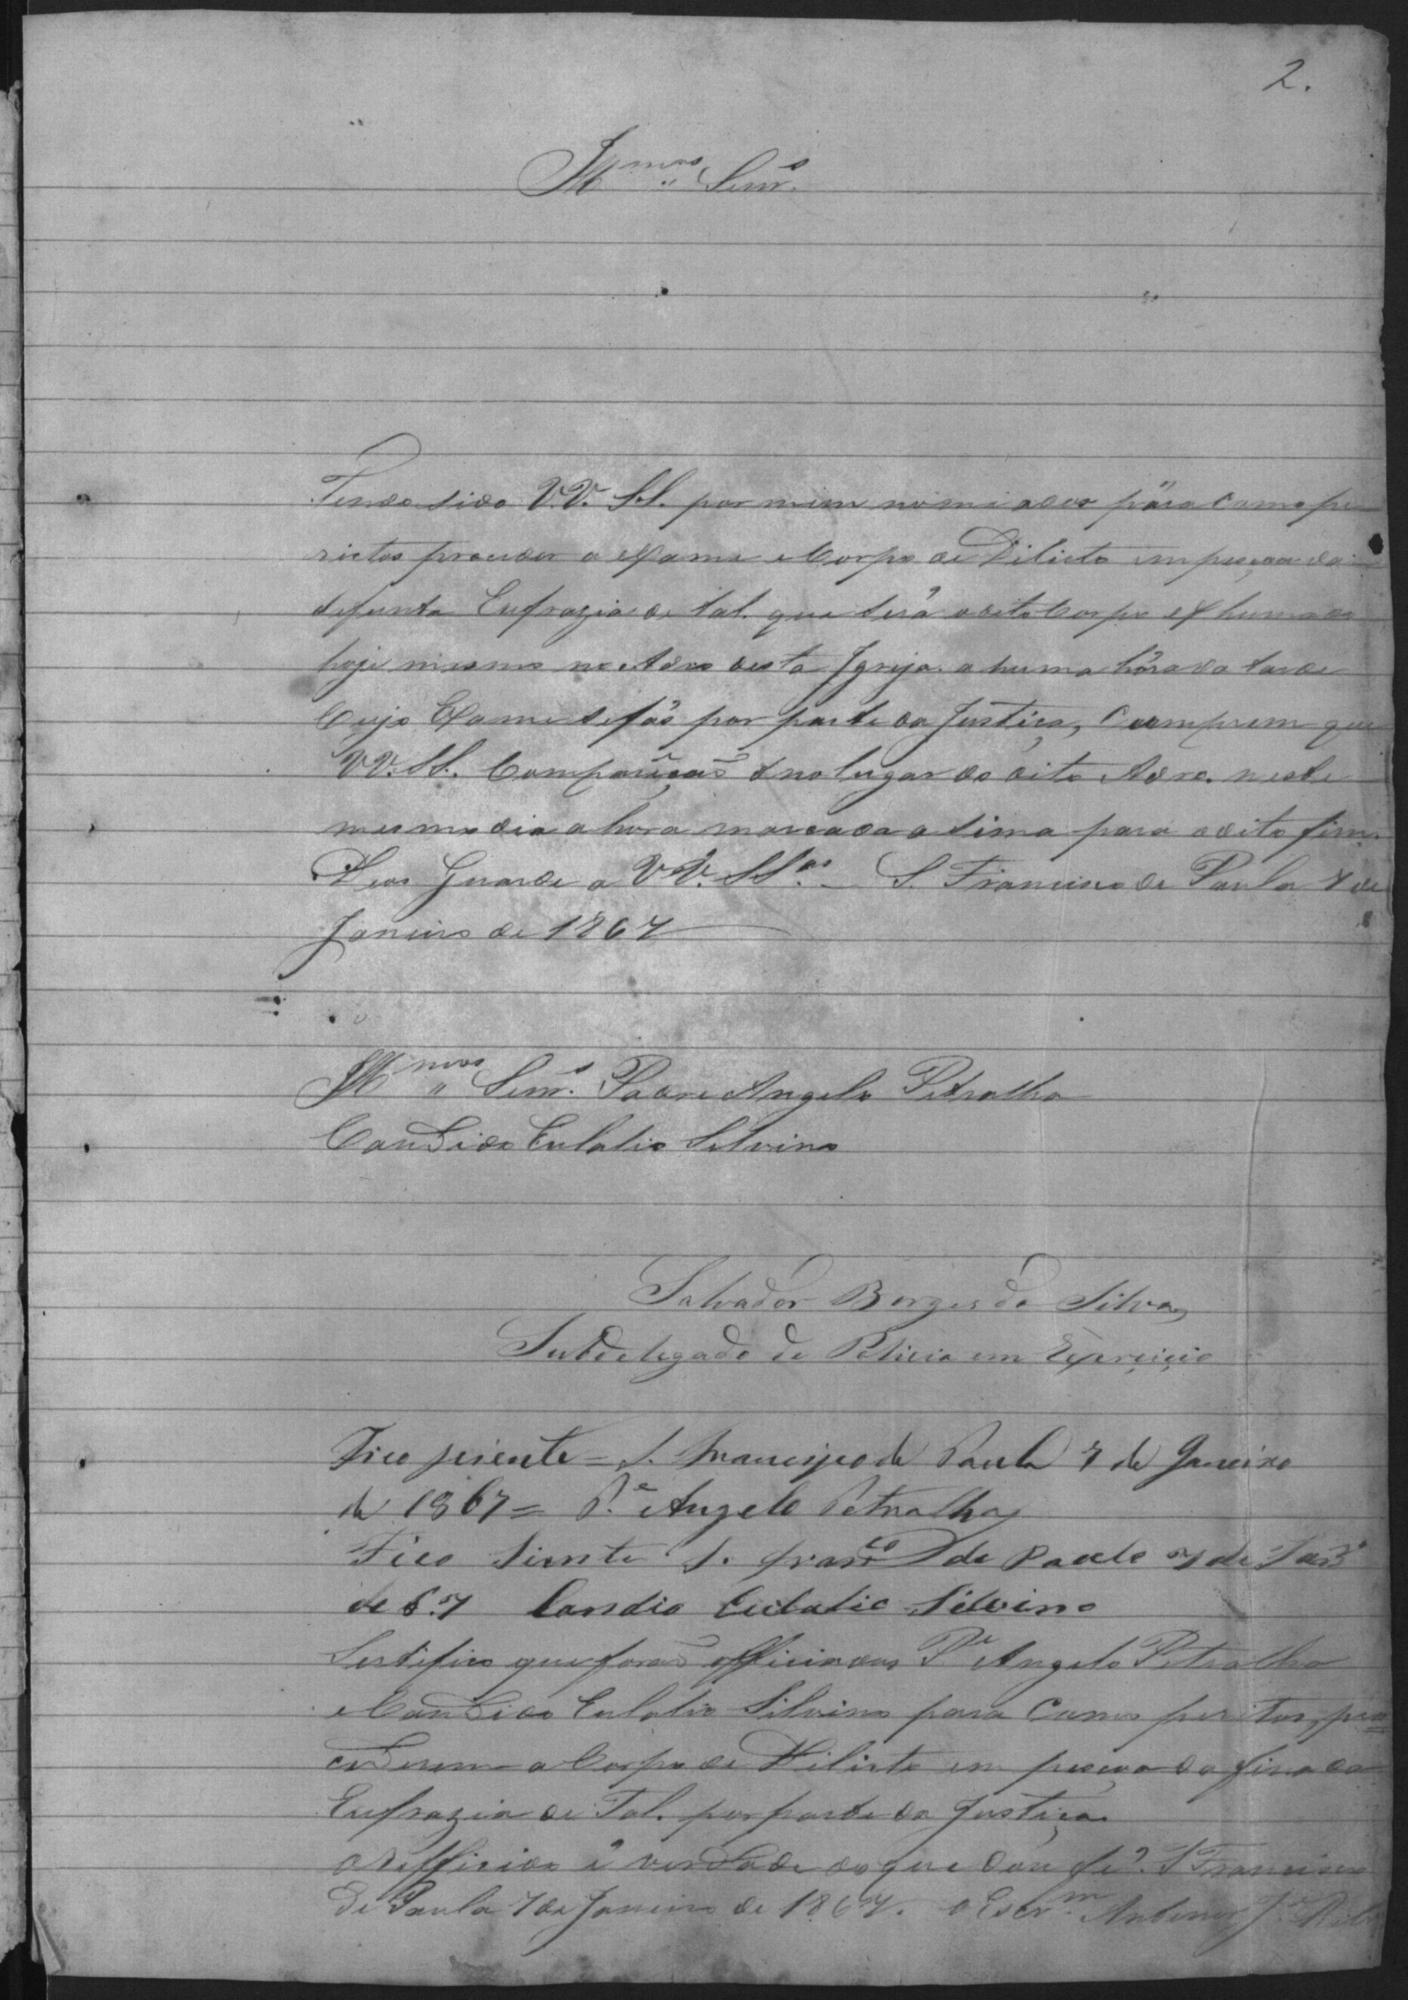 2.
Ill.mos Senr.s
Tendo sido V.V. S.S. por mim nomiados para como pe
ritos proceder a exame e Corpo de Dilicto em peçoa da
defunta Eufrazia de tal. que será o dito Corpo exhumado
hoje mesmo no Adro desta Igreja a huma hóra da tarde
Cujo Exame se fás por parte da Justiça, Cumprem que
VV. SS. Compareçaõ no lugar do dito Adro. neste
mesmo dia a hora marcada asima para o dito fim.
Deos Guarde a VV. SS.as _ S. Francisco de Paula 7 de
Janeiro de 1867
Ill.mos Senr.s Padre Angelo Petralha
Candido Eulalio Silvino
Salvador Borges da Silva
Subdelegado de Policia em Exerçiçio
Fico siente = S. Francisco de Paula 7 de Janeiro
de 1867 = P.e Angelo Petralha
Fico Siente S. Fran.co de Paula 7 de Janr.o
de 67 Candio Eulalio Silvino
Sertifico que foraõ officiados P.e Angelo Petralha
e Candido Eulalio Silvino para Como peritos, pro=
cederem a Corpo de Dilicto em peçoa da finada
Eufrazia de Tal. por parte da Justiça.
o Refficido é verdade do que dou fé. S Francisco
de Paula 7 de Janeiro de 1867. O Escr.m Antonio J.e